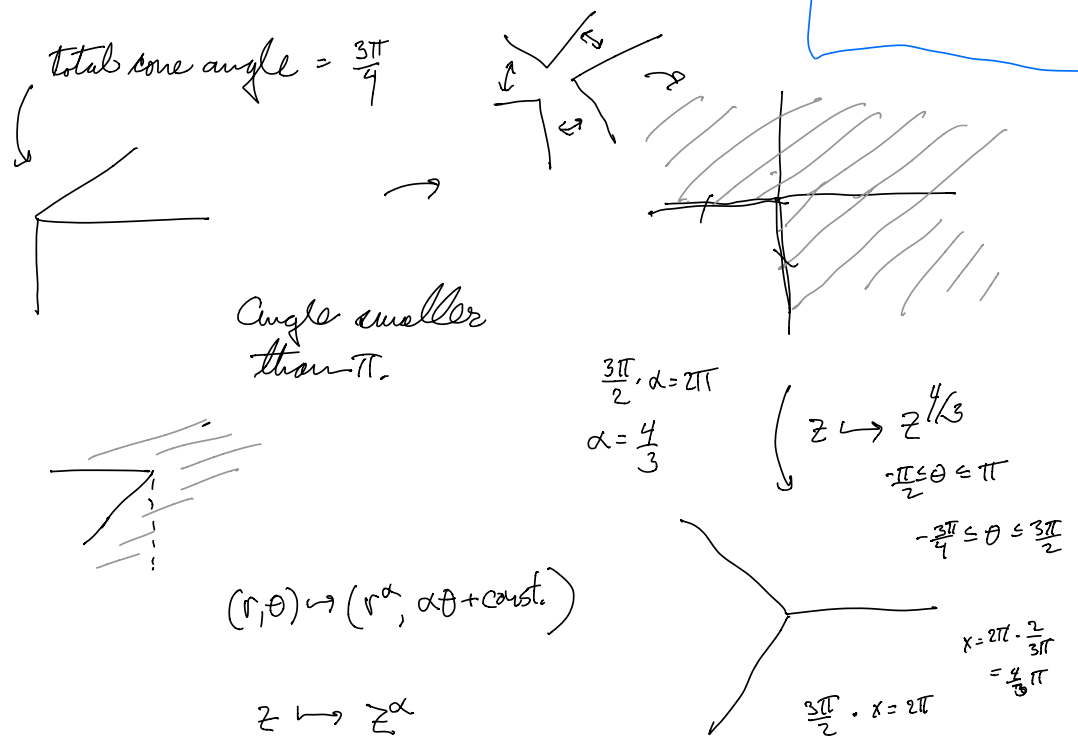 total cone angle = 3π/4
Angle smaller
than π.
3π/2 · α = 2π
α = 4/3
z ↦ z^4/3
-π/2 ≤ θ ≤ π
-3π/4 ≤ θ ≤ 3π/2
(r,θ) ↦ (r^α, αθ + const.)
z ↦ z^α
x = 2π · 2/3π
3π/2 · x = 2π